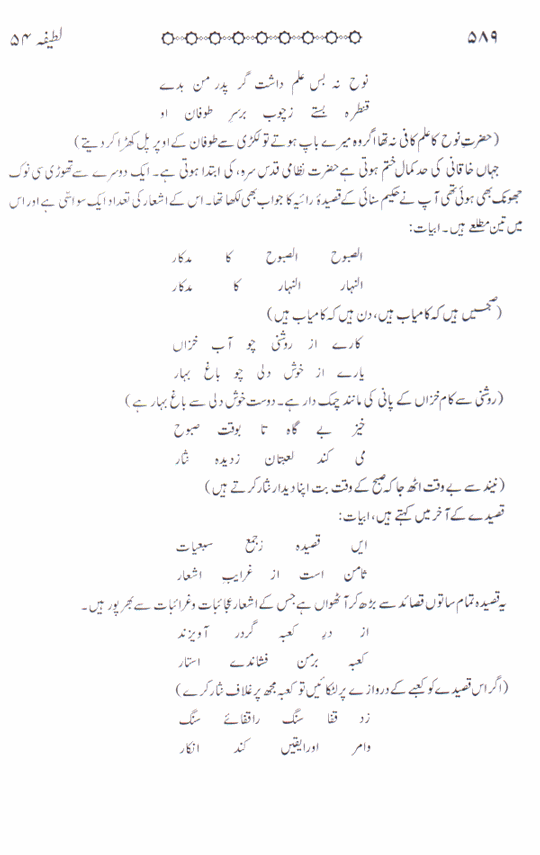 ۵۸۹ لطیفہ ۵۴
نوح نہ بس علم داشت گر پدر من بدے
قنطرہ بستے زچوب برسر طوفان او
(حضرت نوح کا علم کافی نہ تھا اگر وہ میرے باپ ہوتے تو لکڑی سے طوفان کے اوپر پل کھڑا کر دیتے)
جہاں خاقانی کی حد کمال ختم ہوتی ہے حضرت نظامی قدس سرہ، کی ابتدا ہوتی ہے۔ ایک دوسرے سے تھوڑی سی نوک
جھونک بھی ہوئی تھی آپ نے حکیم سنائی کے قصیدۂ رائیہ کا جواب بھی لکھا تھا۔ اس کے اشعار کی تعداد ایک سو اسّی ہے اور اس
میں تین مطلعے ہیں۔ ابیات:
الصبوح الصبوح کا مدکار
النہار النہار کا مدکار
(صبحیں ہیں کہ کامیاب ہیں، دن ہیں کہ کامیاب ہیں)
کارے از روشنی چو آب خزاں
یارے از خوش دلی چو باغ بہار
(روشنی سے کام خزاں کے پانی کی مانند چمک دار ہے۔ دوست خوش دلی سے باغ بہار ہے)
خیز بے گاہ تا بوقت صبوح
می کند لعبتان زدیدہ نثار
(نیند سے بے وقت اٹھ جا کہ صبح کے وقت بت اپنا دیدار نثار کرتے ہیں)
قصیدے کے آخر میں کہتے ہیں، ابیات:
ایں قصیدہ زجمع سبعیات
ثامن است از غرایب اشعار
یہ قصیدہ تمام ساتوں قصائد سے بڑھ کر آٹھواں ہے جس کے اشعار عجائبات و غرائبات سے بھرپور ہیں۔
از درِ کعبہ گردر آویزند
کعبہ برمن فشاندے استار
(اگر اس قصیدے کو کعبے کے دروازے پر لٹکائیں تو کعبہ مجھ پر غلاف نثار کرے)
زد قفا سنگ راقفائے سنگ
وامر اورایقیں کند انکار